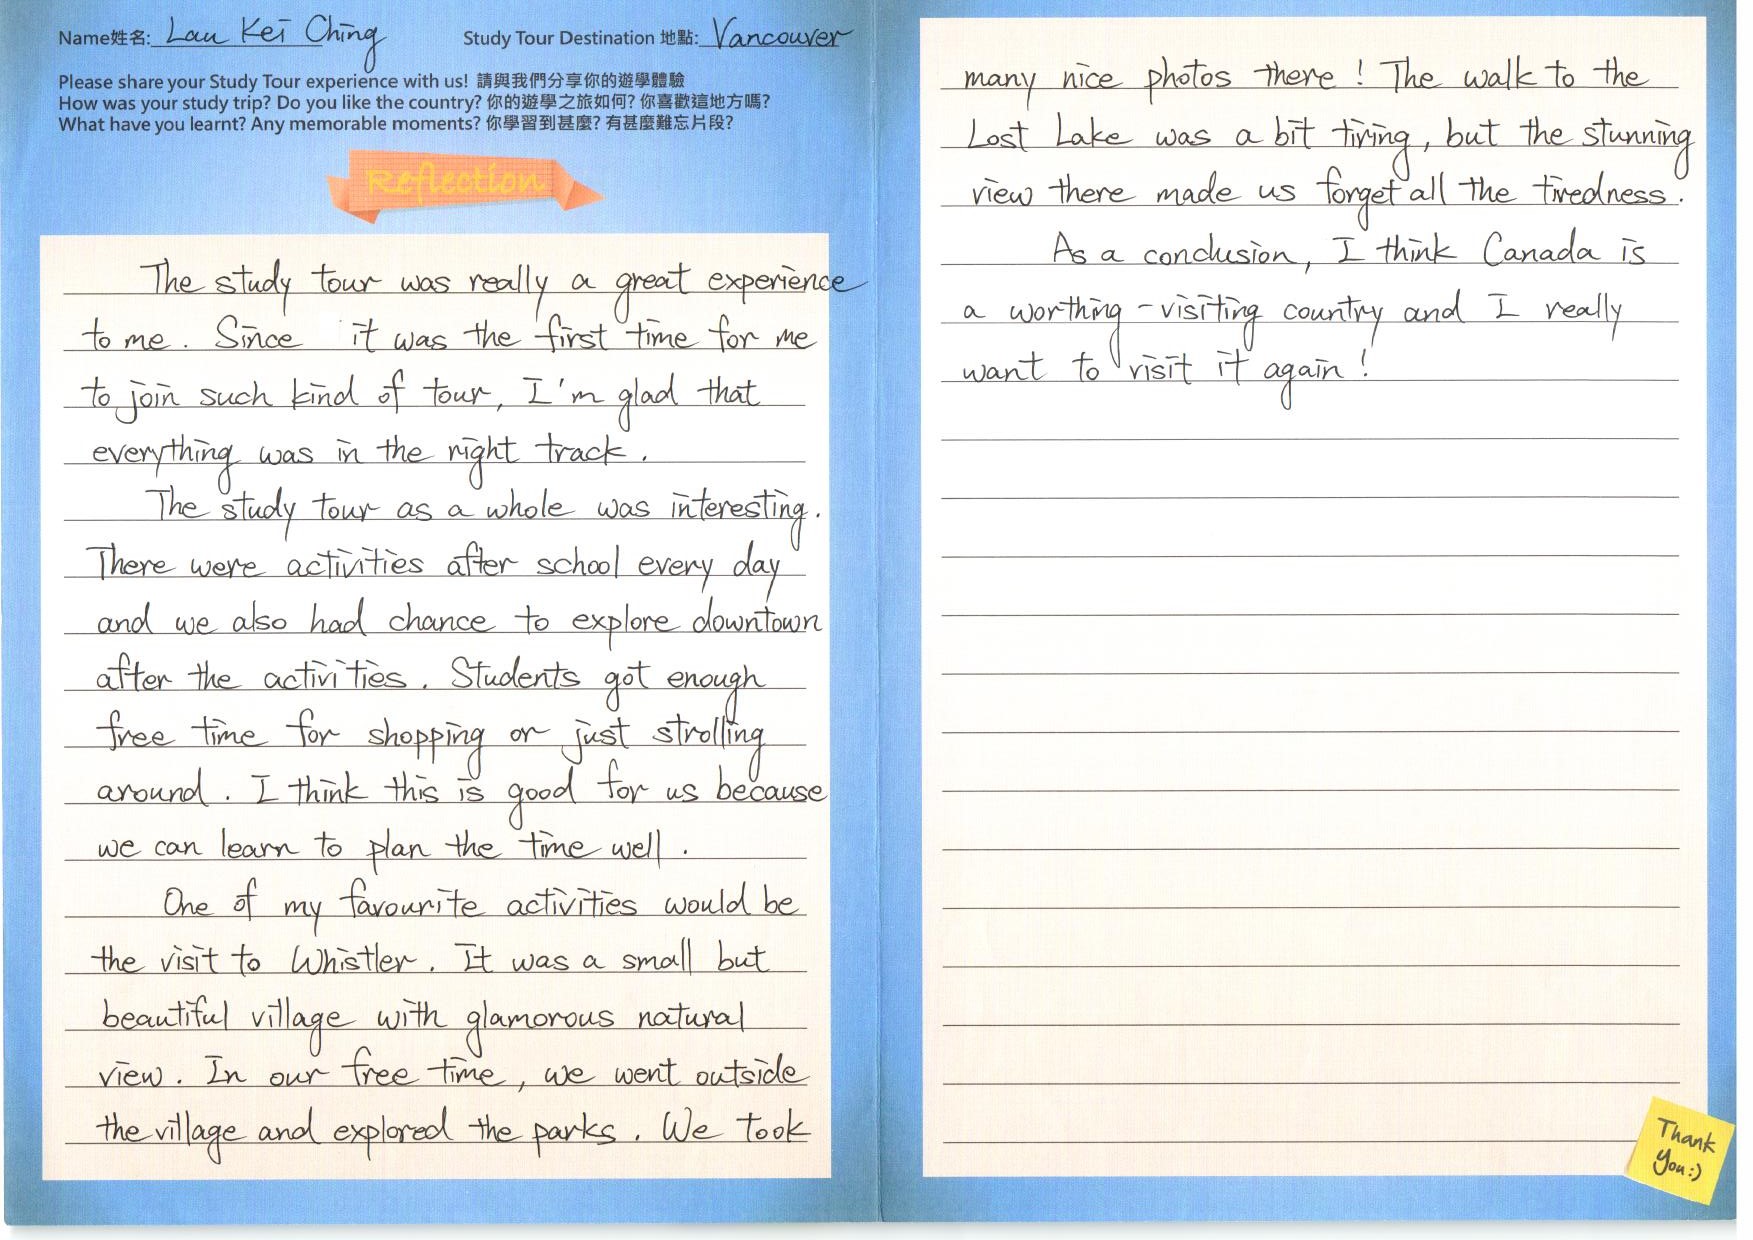 Name姓名: Lau Kei Ching
Study Tour Destination 地點: Vancouver
Please share your Study Tour experience with us! 請與我們分享你的遊學體驗
How was your study trip? Do you like the country? 你的遊學之旅如何? 你喜歡這地方嗎?
What have you learnt? Any memorable moments? 你學習到甚麼? 有甚麼難忘片段?
Reflection
The study tour was really a great experience
to me. Since it was the first time for me
to join such kind of tour, I'm glad that
everything was in the right track.
The study tour as a whole was interesting.
There were activities after school every day
and we also had chance to explore downtown
after the activities. Students got enough
free time for shopping or just strolling
around. I think this is good for us because
we can learn to plan the time well.
One of my favourite activities would be
the visit to Whistler. It was a small but
beautiful village with glamorous natural
view. In our free time, we went outside
the village and explored the parks. We took
many nice photos there! The walk to the
Lost Lake was a bit tiring, but the stunning
view there made us forget all the tiredness.
As a conclusion, I think Canada is
a worthing-visiting country and I really
want to visit it again!
Thank
You:)